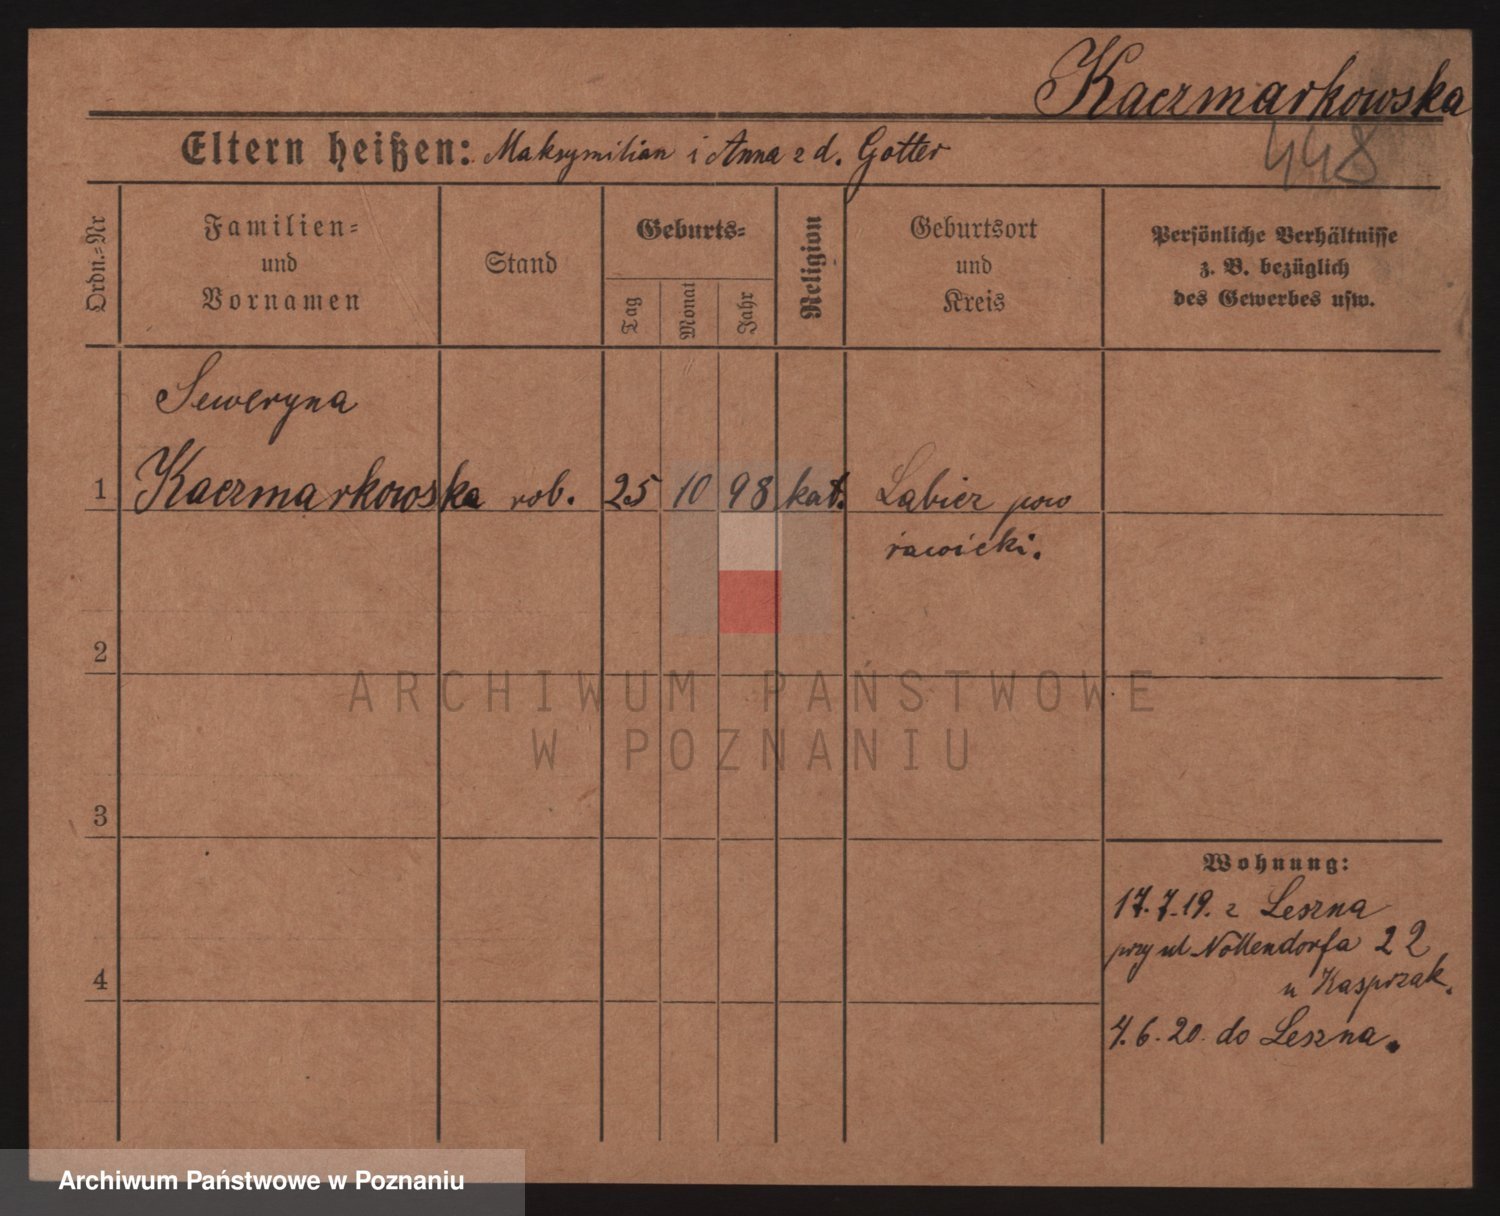 Kaczmarkowska
448
Eltern heißen: Maksymilian i Anna z d. Gotter
Ordn.=Nr
Familien=
und
Vornamen
Stand
Geburts=
Tag
Monat
Jahr
Religion
Geburtsort
und
Kreis
Persönliche Verhältnisse
z. B. bezüglich
des Gewerbes usw.
Seweryna
1 Kaczmarkowska rob. 25 10 98 kat. Łabicz pow
rawicki.
2
ARCHIWUM PAŃSTWOWE
W POZNANIU
3
Wohnung:
17.7.19. z Leszna
przy ul Nollendorfa 22
4
u Kasprzak.
4.6.20. do Leszna.
Archiwum Państwowe w Poznaniu